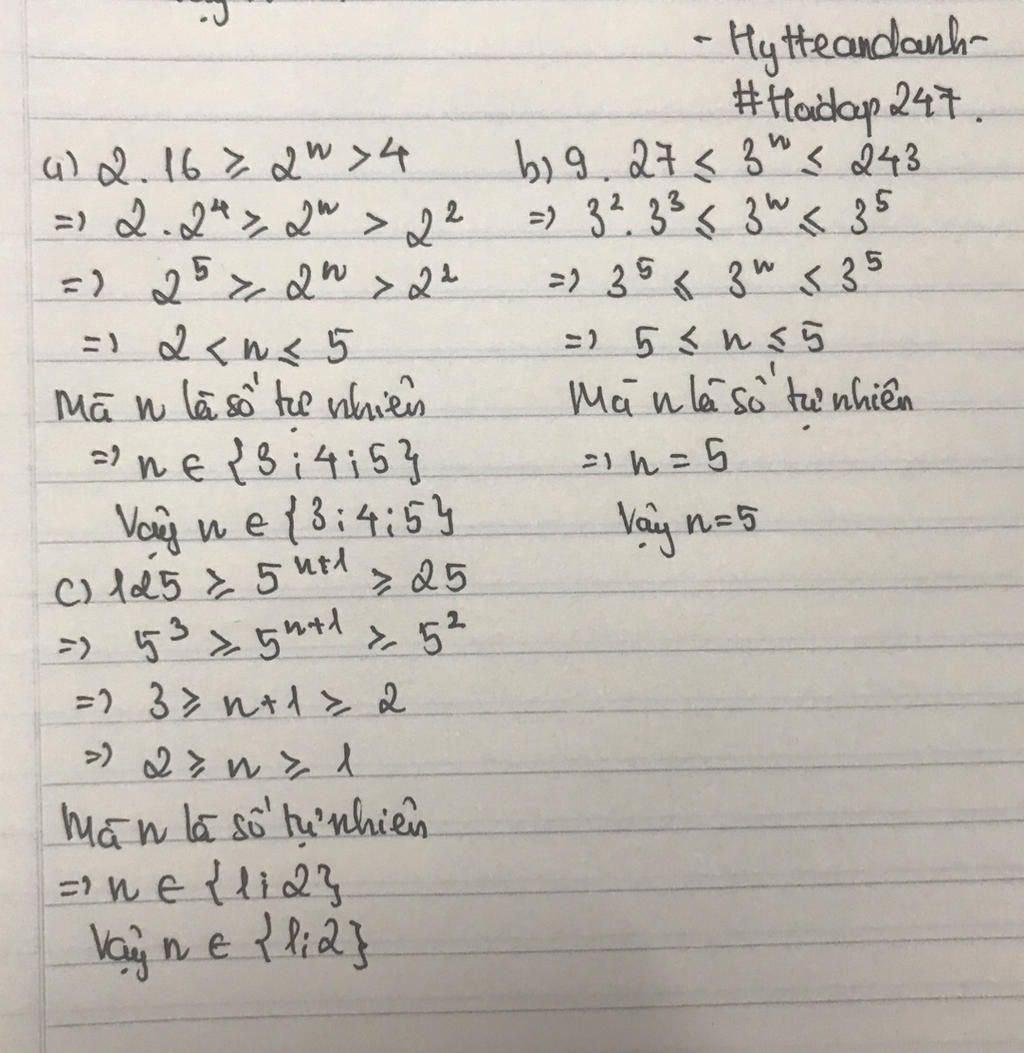 - Hytteandanh-
#Hoidap247.
a) 2.16 ⩾ 2ⁿ > 4
=> 2.2⁴ ⩾ 2ⁿ > 2²
=> 2⁵ ⩾ 2ⁿ > 2²
=> 2 < n ⩽ 5
Mà n là số tự nhiên
=> n ∈ {3;4;5}
Vậy n ∈ {3;4;5}
b) 9.27 ⩽ 3ⁿ ⩽ 243
=> 3².3³ ⩽ 3ⁿ ⩽ 3⁵
=> 3⁵ ⩽ 3ⁿ ⩽ 3⁵
=> 5 ⩽ n ⩽ 5
Mà n là số tự nhiên
=> n = 5
Vậy n=5
c) 125 ⩾ 5ⁿ⁺¹ ⩾ 25
=> 5³ ⩾ 5ⁿ⁺¹ ⩾ 5²
=> 3 ⩾ n+1 ⩾ 2
=> 2 ⩾ n ⩾ 1
Mà n là số tự nhiên
=> n ∈ {1;2}
Vậy n ∈ {1;2}